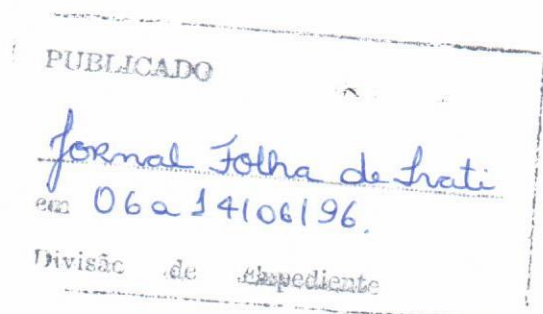 PUBLICADO
Jornal Folha de Irati
em 06 a 14/06/96.
Divisão de Expediente